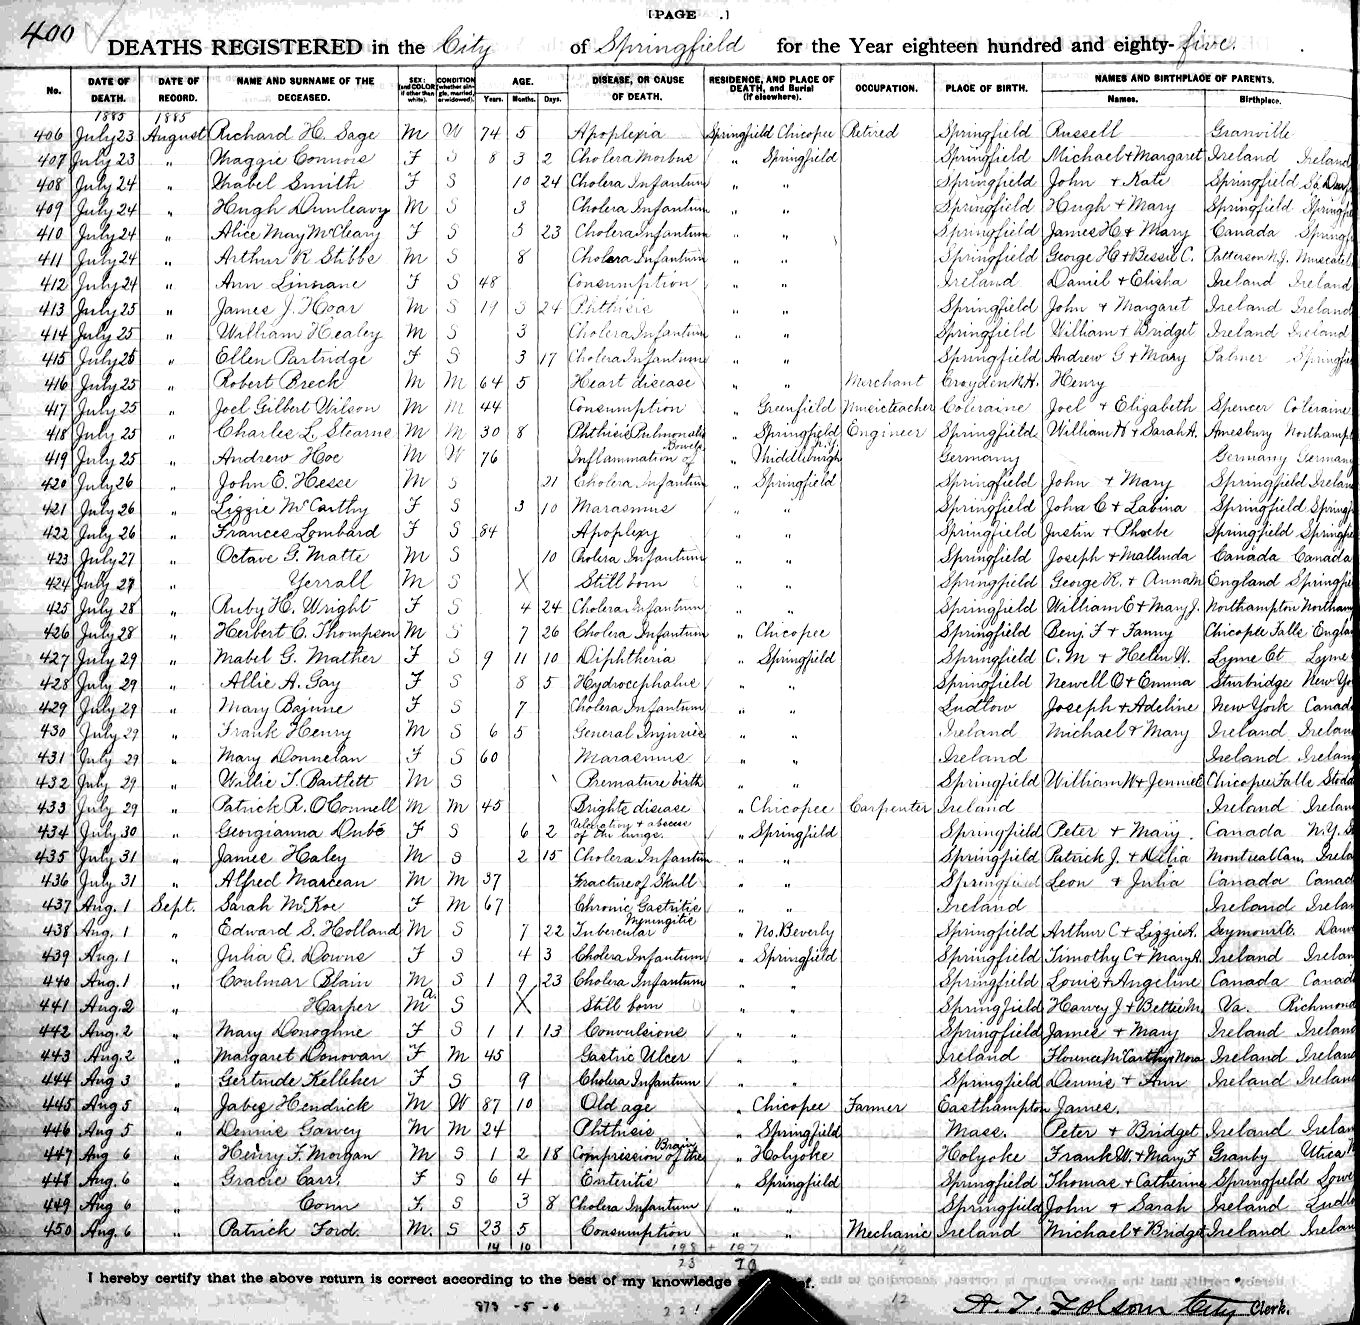 [PAGE .]
400
DEATHS REGISTERED in the City of Springfield for the Year eighteen hundred and eighty-five.
No. DATE OF DEATH. DATE OF RECORD. NAME AND SURNAME OF THE DECEASED. SEX: (and COLOR if other than white). CONDITION (whether single, married, or widowed). AGE. Years. Months. Days. DISEASE, OR CAUSE OF DEATH. RESIDENCE, AND PLACE OF DEATH, and Burial (if elsewhere). OCCUPATION. PLACE OF BIRTH. NAMES AND BIRTHPLACE OF PARENTS. Names. Birthplace.
1885 1885
406 July 23 August Richard H. Sage M W 74 5 Apoplexia Springfield Chicopee Retired Springfield Russell Granville
407 July 23 " Maggie Connors F S 8 3 2 Cholera Morbus " Springfield Springfield Michael & Margaret Ireland Ireland
408 July 24 " Mabel Smith F S 10 24 Cholera Infantum " " Springfield John & Kate Springfield
409 July 24 " Hugh Dunleavy M S 3 Cholera Infantum " " Springfield Hugh & Mary Springfield Springf
410 July 24 " Alice May McCleary F S 3 23 Cholera Infantum " " Springfield James H & Mary Canada Springf
411 July 24 " Arthur R Stibbs M S 8 Cholera Infantum " " Springfield George H & Bessie C. Patterson N.J. Muscate
412 July 24 " Ann Linnane F S 48 Consumption " " Ireland Daniel & Elisha Ireland Ireland
413 July 25 " James J. Hoar M S 19 3 24 Phthisis " " Springfield John & Margaret Ireland Ireland
414 July 25 " William Healey M S 3 Cholera Infantum " " Springfield William & Bridget Ireland Ireland
415 July 25 " Ellen Partridge F S 3 17 Cholera Infantum " " Springfield Andrew G & Mary Palmer Springfie
416 July 25 " Robert Breck M M 64 5 Heart disease " " Merchant Croyden N.H. Henry
417 July 25 " Joel Gilbert Wilson M M 44 Consumption " Greenfield Music teacher Coleraine Joel & Elizabeth Spencer Coleraine
418 July 25 " Charles L. Stearns M M 30 8 Phthisis Pulmonalis " Springfield Engineer Springfield William H & Sarah A. Amesbury Northampt
419 July 25 " Andrew Hoe M W 76 Inflammation of Bowels " Middleburgh Germany Germany German
420 July 26 " John E. Hesse M S 21 Cholera Infantum " Springfield Springfield John & Mary Springfield Irelan
421 July 26 " Lizzie McCarthy F S 3 10 Marasmus " " Springfield John C & Lavina Springfield Spring
422 July 26 " Frances Lombard F S 84 Apoplexy " " Springfield Justin & Phoebe Springfield Springfie
423 July 27 " Octave G. Matte M S 10 Cholera Infantum " " Springfield Joseph & Mallenda Canada Canada
424 July 27 " Yerrall M S X Still born " " Springfield George R. & Anna M England Springfie
425 July 28 " Ruby H. Wright F S 4 24 Cholera Infantum " " Springfield William E & Mary J. Northampton Northam
426 July 28 " Herbert C. Thompson M S 7 26 Cholera Infantum " Chicopee Springfield Benj. F & Fanny Chicopee Falls Englan
427 July 29 " Mabel G. Mather F S 9 11 10 Diphtheria " Springfield Springfield C. M & Helen W. Lyme Ct Lyme
428 July 29 " Allie A. Gay F S 8 5 Hydrocephalus " " Springfield Newell O & Emma Sturbridge New Yo
429 July 29 " Mary Bajune F S 7 Cholera Infantum " " Ludlow Joseph & Adeline New York Canad
430 July 29 " Frank Henry M S 6 5 General Injuries " " Ireland Michael & Mary Ireland Ireland
431 July 29 " Mary Donnelan F S 60 Marasmus " " Ireland Ireland Irelan
432 July 29 " Willie T. Bartlett M S Premature birth " " Springfield William W & Jennie E Chicopee Falls Stodd
433 July 29 " Patrick R. O'Connell M M 45 Brights disease " Chicopee Carpenter Ireland Ireland Irelan
434 July 30 " Georgianna Dubé F S 6 2 Ulceration & abscess of the lungs. " Springfield Springfield Peter & Mary Canada N.Y.
435 July 31 " James Haley M S 2 15 Cholera Infantum " " Springfield Patrick J. & Delia Montreal Can. Irela
436 July 31 " Alfred Marcean M M 37 Fracture of Skull " " Springfield Leon & Julia Canada Canad
437 Aug. 1 Sept. Sarah McKoe F M 67 Chronic Gastritis " " Ireland Ireland Irelan
438 Aug. 1 " Edward S. Holland M S 7 22 Tubercular Meningitis " No. Beverly Springfield Arthur C & Lizzie A. Seymour Ct. Dan
439 Aug. 1 " Julia E. Downs F S 4 3 Cholera Infantum " Springfield Springfield Timothy C & Mary A. Ireland Irelan
440 Aug. 1 " Coulmar Blain M S 1 9 23 Cholera Infantum " " Springfield Louis & Angeline Canada Canad
441 Aug. 2 " Harper M a. S X Still born " " Springfield Harvey J & Bettie M. Va. Richmond
442 Aug. 2 " Mary Donoghue F S 1 1 13 Convulsions " " Springfield James & Mary Ireland Irelan
443 Aug. 2 " Margaret Donovan F M 45 Gastric Ulcer " " Ireland Florence McCarthy & Nora Ireland Ireland
444 Aug 3 " Gertrude Kelleher F S 9 Cholera Infantum " " Springfield Dennis & Ann Ireland Ireland
445 Aug 5 " Jabez Hendrick M W 87 10 Old age " Chicopee Farmer Easthampton James.
446 Aug 5 " Dennis Garvey M M 24 Phthisis " Springfield Mass. Peter & Bridget Ireland Irelan
447 Aug 6 " Henry F. Morgan M S 1 2 18 Compression of the Brain " Holyoke Holyoke Frank W. & Mary F Granby Utica
448 Aug. 6 " Gracie Carr. F S 6 4 Enteritis " Springfield Springfield Thomas & Catherine Springfield Lowe
449 Aug 6 " Conn F. S 3 8 Cholera Infantum " " Springfield John & Sarah Ireland Ludl
450 Aug. 6 " Patrick Ford. M. S 23 5 Consumption " " Mechanic Ireland Michael & Bridget Ireland Irelan
14 10 198 + 197
23 70
I hereby certify that the above return is correct according to the best of my knowledge
873 - 5 - 6 221 12
A. T. Folsom City Clerk.